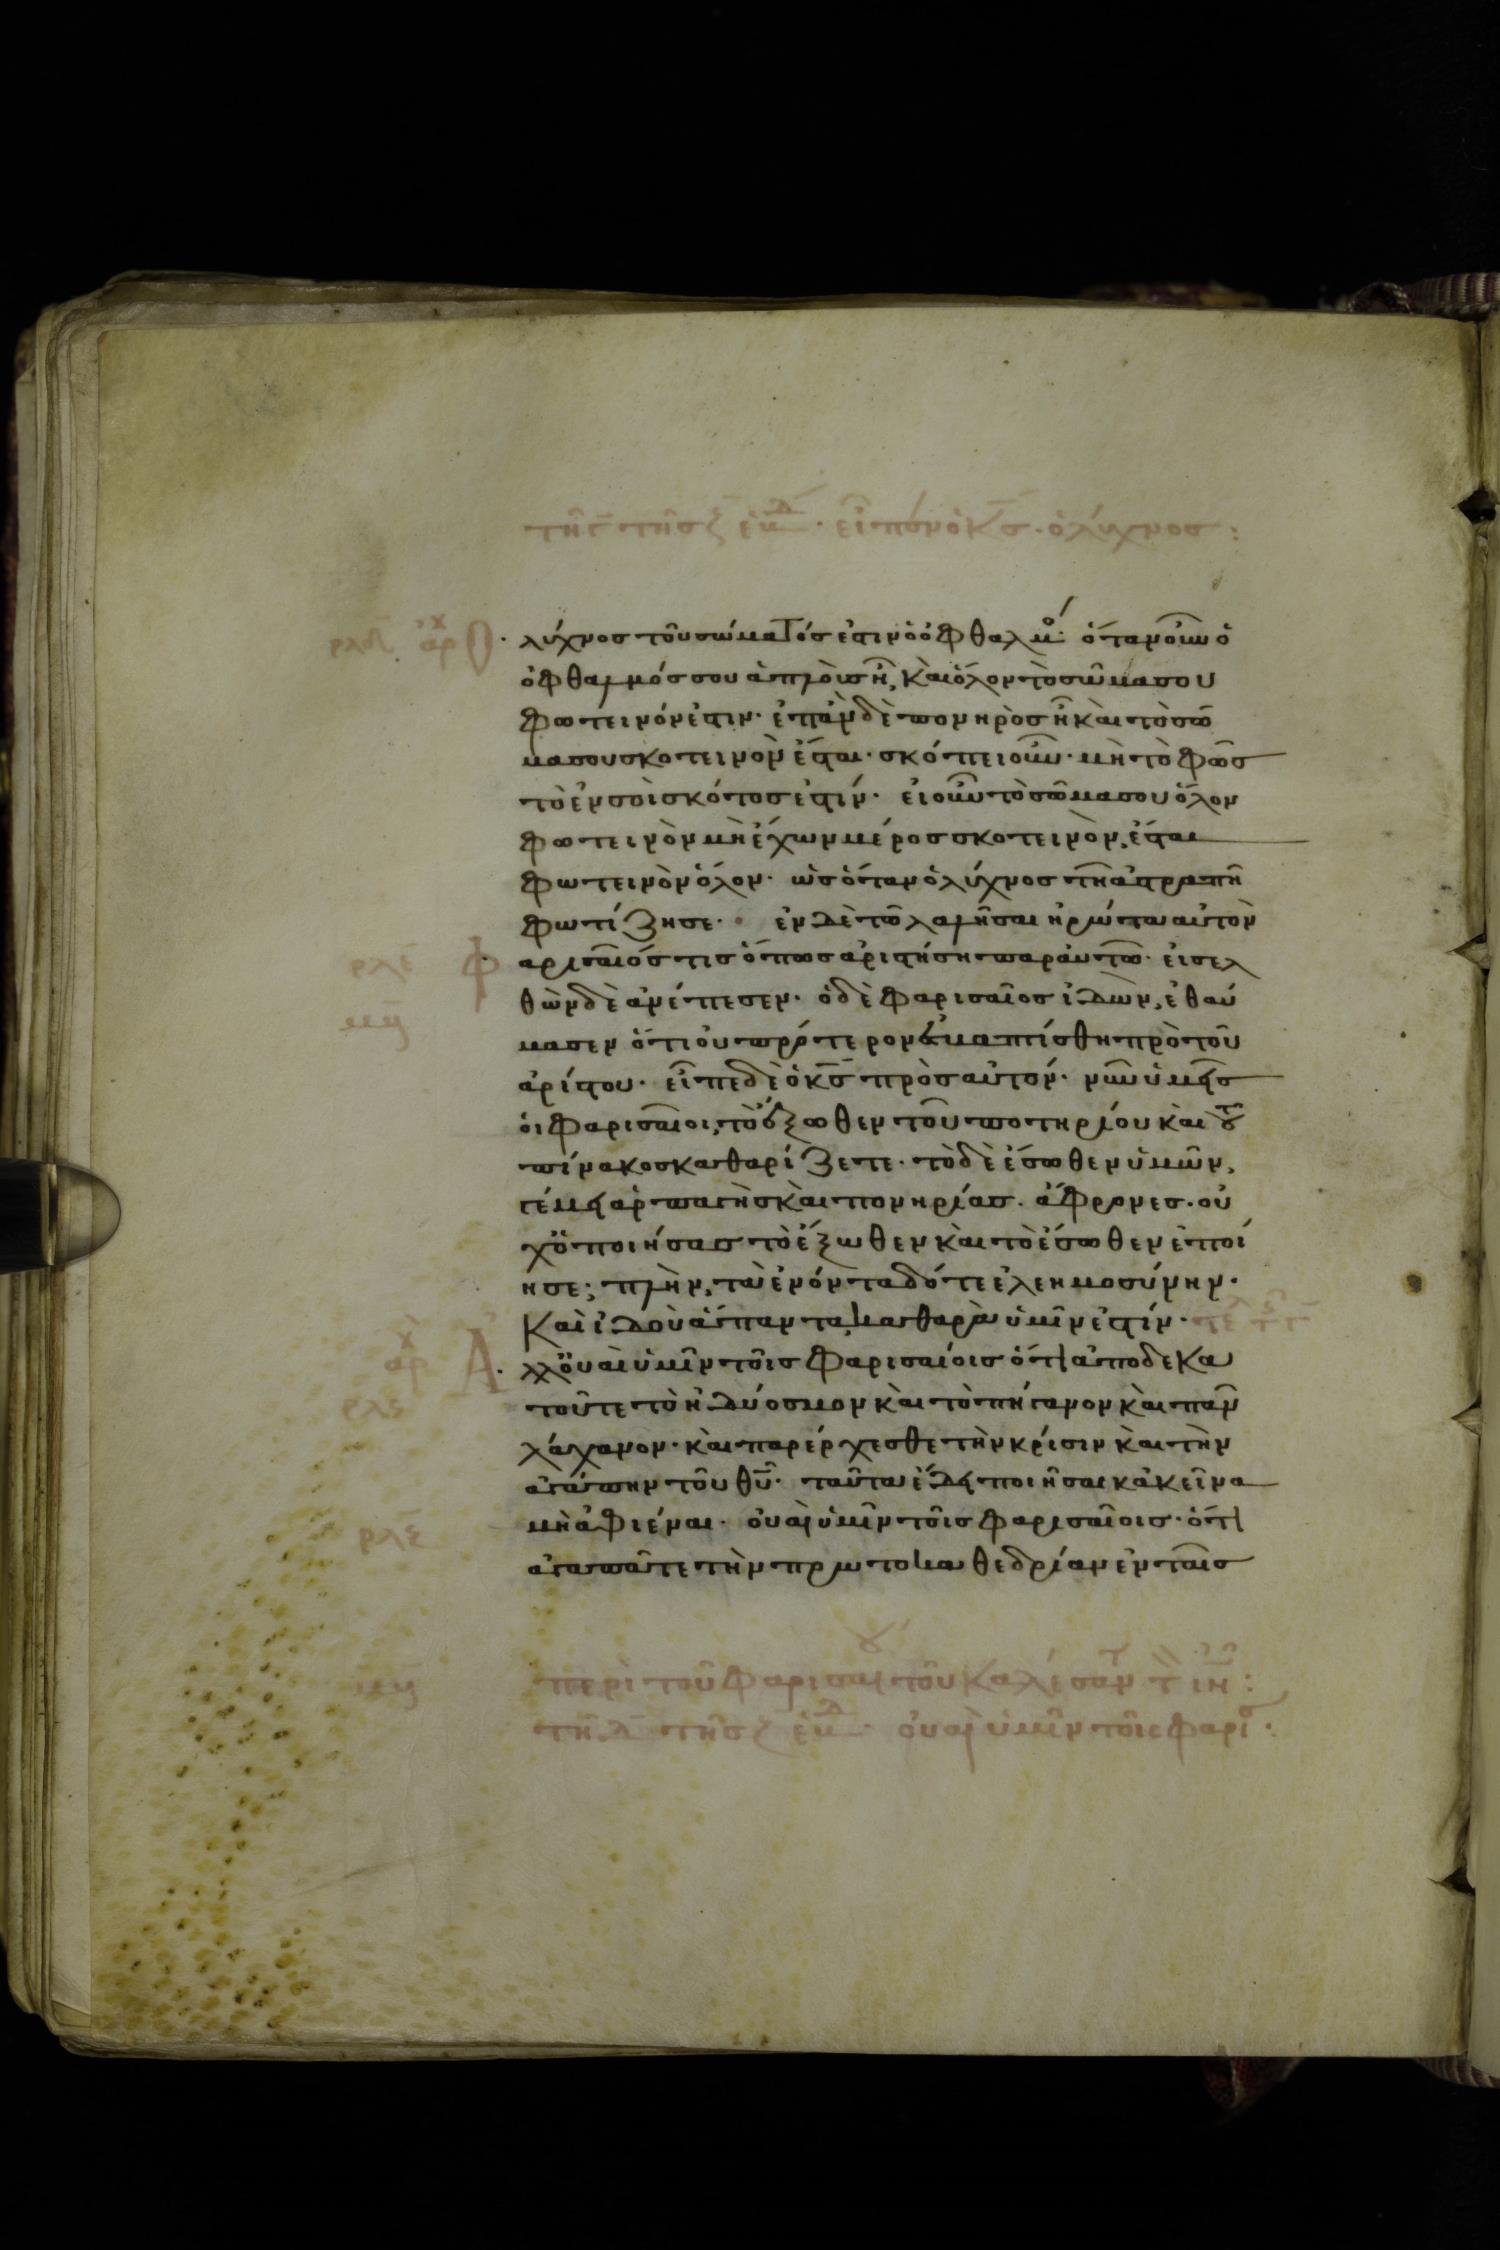 τῆ ϛ τῆς ζ ἑβδ· εἶπεν ὁ κς· ὁ λύχνος:
ρλδ ἀρχ Ὁ λύχνος τοῦ σώματός ἐστιν ὁ ὀφθαλμο· ὅταν οὖν ὁ
ὀφθαλμός σου ἁπλοῦς ἦ, καὶ ὅλον τὸ σῶμα σου
φωτεινόν ἐστιν· ἐπὰν δὲ πονηρὸς ἦ καὶ τὸ σῶ
μα σου σκοτεινὸν ἔσται· σκόπει οὖν· μὴ τὸ φῶς
τὸ ἐν σοὶ σκότος ἐστίν· εἰ οὖν τὸ σῶμα σου ὅλον
φωτεινὸν μὴ ἔχων μέρος σκοτεινὸν, ἔσται
φωτεινὸν ὅλον· ὡς ὅταν ὁ λύχνος τῆ ἀστραπῆ
φωτίζη σε· ἐν δὲ τῶ λαλῆσαι ἠρώτα αὐτὸν
ρλε Φαρισαῖός τις ὅπως ἀριστήση παρ αὐτῶ· εἰσελ
θὼν δὲ ἀνέπεσεν· ὁ δὲ φαρισαῖος ἰδὼν, ἐθαύ
μασεν ὅτι οὐ πρότερον ἐβαπτίσθη πρὸ τοῦ
ἀρίστου· εἶπε δὲ ὁ κς πρὸς αὐτόν· νῦν ὑμεῖς
οἱ φαρισαῖοι, τὸ ἔξωθεν τοῦ ποτηρίου καὶ τοῦ
πίνακος καθαρίζετε· τὸ δὲ ἔσωθεν ὑμῶν,
γέμει ἁρπαγῆς καὶ πονηρίας. ἄφρονες· οὐ
χ ὁ ποιήσας τὸ ἔξωθεν καὶ τὸ ἔσωθεν ἐποί
ησε; πλὴν, τὰ ἐνόντα δότε ἐλεημοσύνην·
Καὶ ἰδοὺ ἅπαντα, καθαρὰ ὑμῖν ἐστίν· τέλ
ἀρχ Ἀλλ οὐαὶ ὑμῖν τοῖς φαρισαίοις ὅτι ἀποδεκα
ρλϛ τοῦτε τὸ ἡδύοσμον καὶ τὸ πήγανον καὶ πᾶν
λάχανον· καὶ παρέρχεσθε τὴν κρίσιν καὶ τὴν
ἀγάπην τοῦ θυ· ταῦτα ἔδει ποιῆσαι κἀκεῖνα
μὴ ἀφιέναι· οὐαὶ ὑμῖν τοῖς φαρισαίοις· ὅτι
ἀγαπᾶτε τὴν πρωτοκαθεδρίαν ἐν ταῖς
περὶ τοῦ φαρισαίου τοῦ καλέσαντ τὸν ιν:
τῆ δ τῆς ζ ἑβδ· οὐαὶ ὑμῖν τοῖς φαρισ·